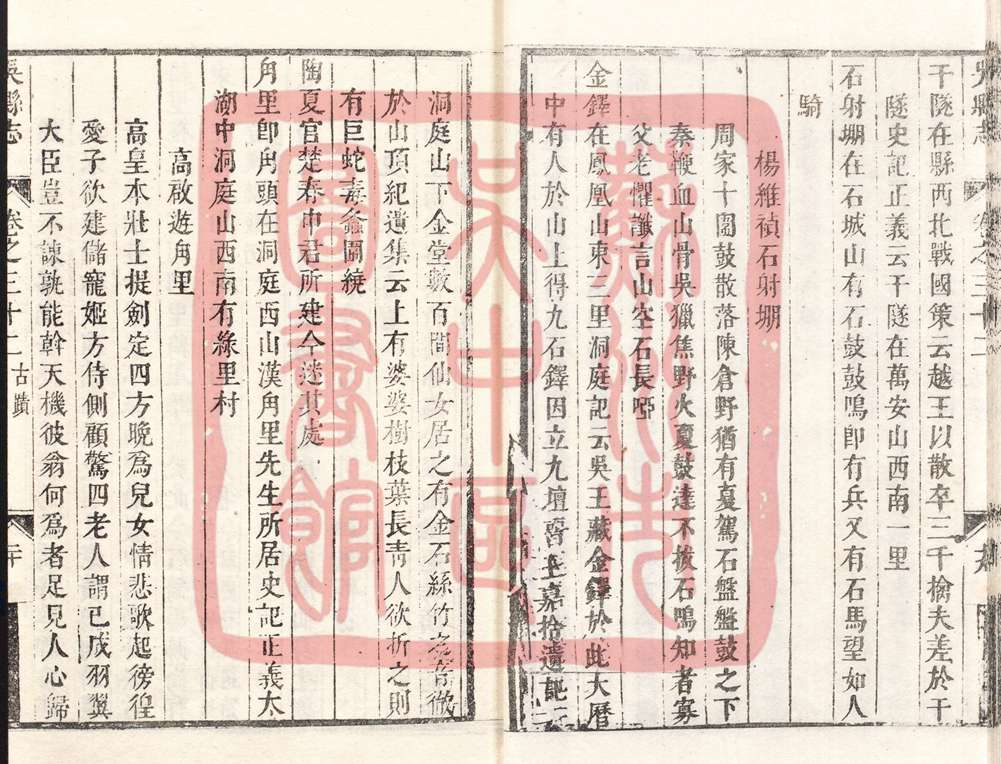 吳縣志 卷之三十二
干隧在縣西北戰國策云越王以散卒三千擒夫差於干
隧史記正義云干隧在萬安山西南一里
石射堋在石城山有石鼓鼓鳴即有兵又有石馬望如人
騎
楊維禎石射堋
周家十圄鼓散落陳倉野猶有夏駕石盤盤鼓之下
秦鞭血山骨吳獵焦野火夏鼓遠不拔石鳴知者寡
父老懼讖言山空石長啞
金鐸在鳳凰山東二里洞庭記云吳王藏金鐸於此大曆
中有人於山上得九石鐸因立九壇王嘉拾遺記
洞庭山下金堂數百間仙女居之有金石絲竹之音徹
於山頂紀遺集云上有婆婆樹枝葉長青人欲折之則
有巨蛇毒螽圍繞
陶夏官楚春申君所建今迷其處
角里即角頭在洞庭西山漢角里先生所居史記正義太
湖中洞庭山西南有綠里村
高啟遊角里
高皇本壯士提劍定四方晚爲兒女情悲歌起徬徨
愛子欲建儲寵姬方侍側顧驚四老人謂已成羽翼
大臣豈不諫孰能斡天機彼翁何爲者足見人心歸
吳縣志 卷之三十二 古蹟 二十
吳中區
圖書館